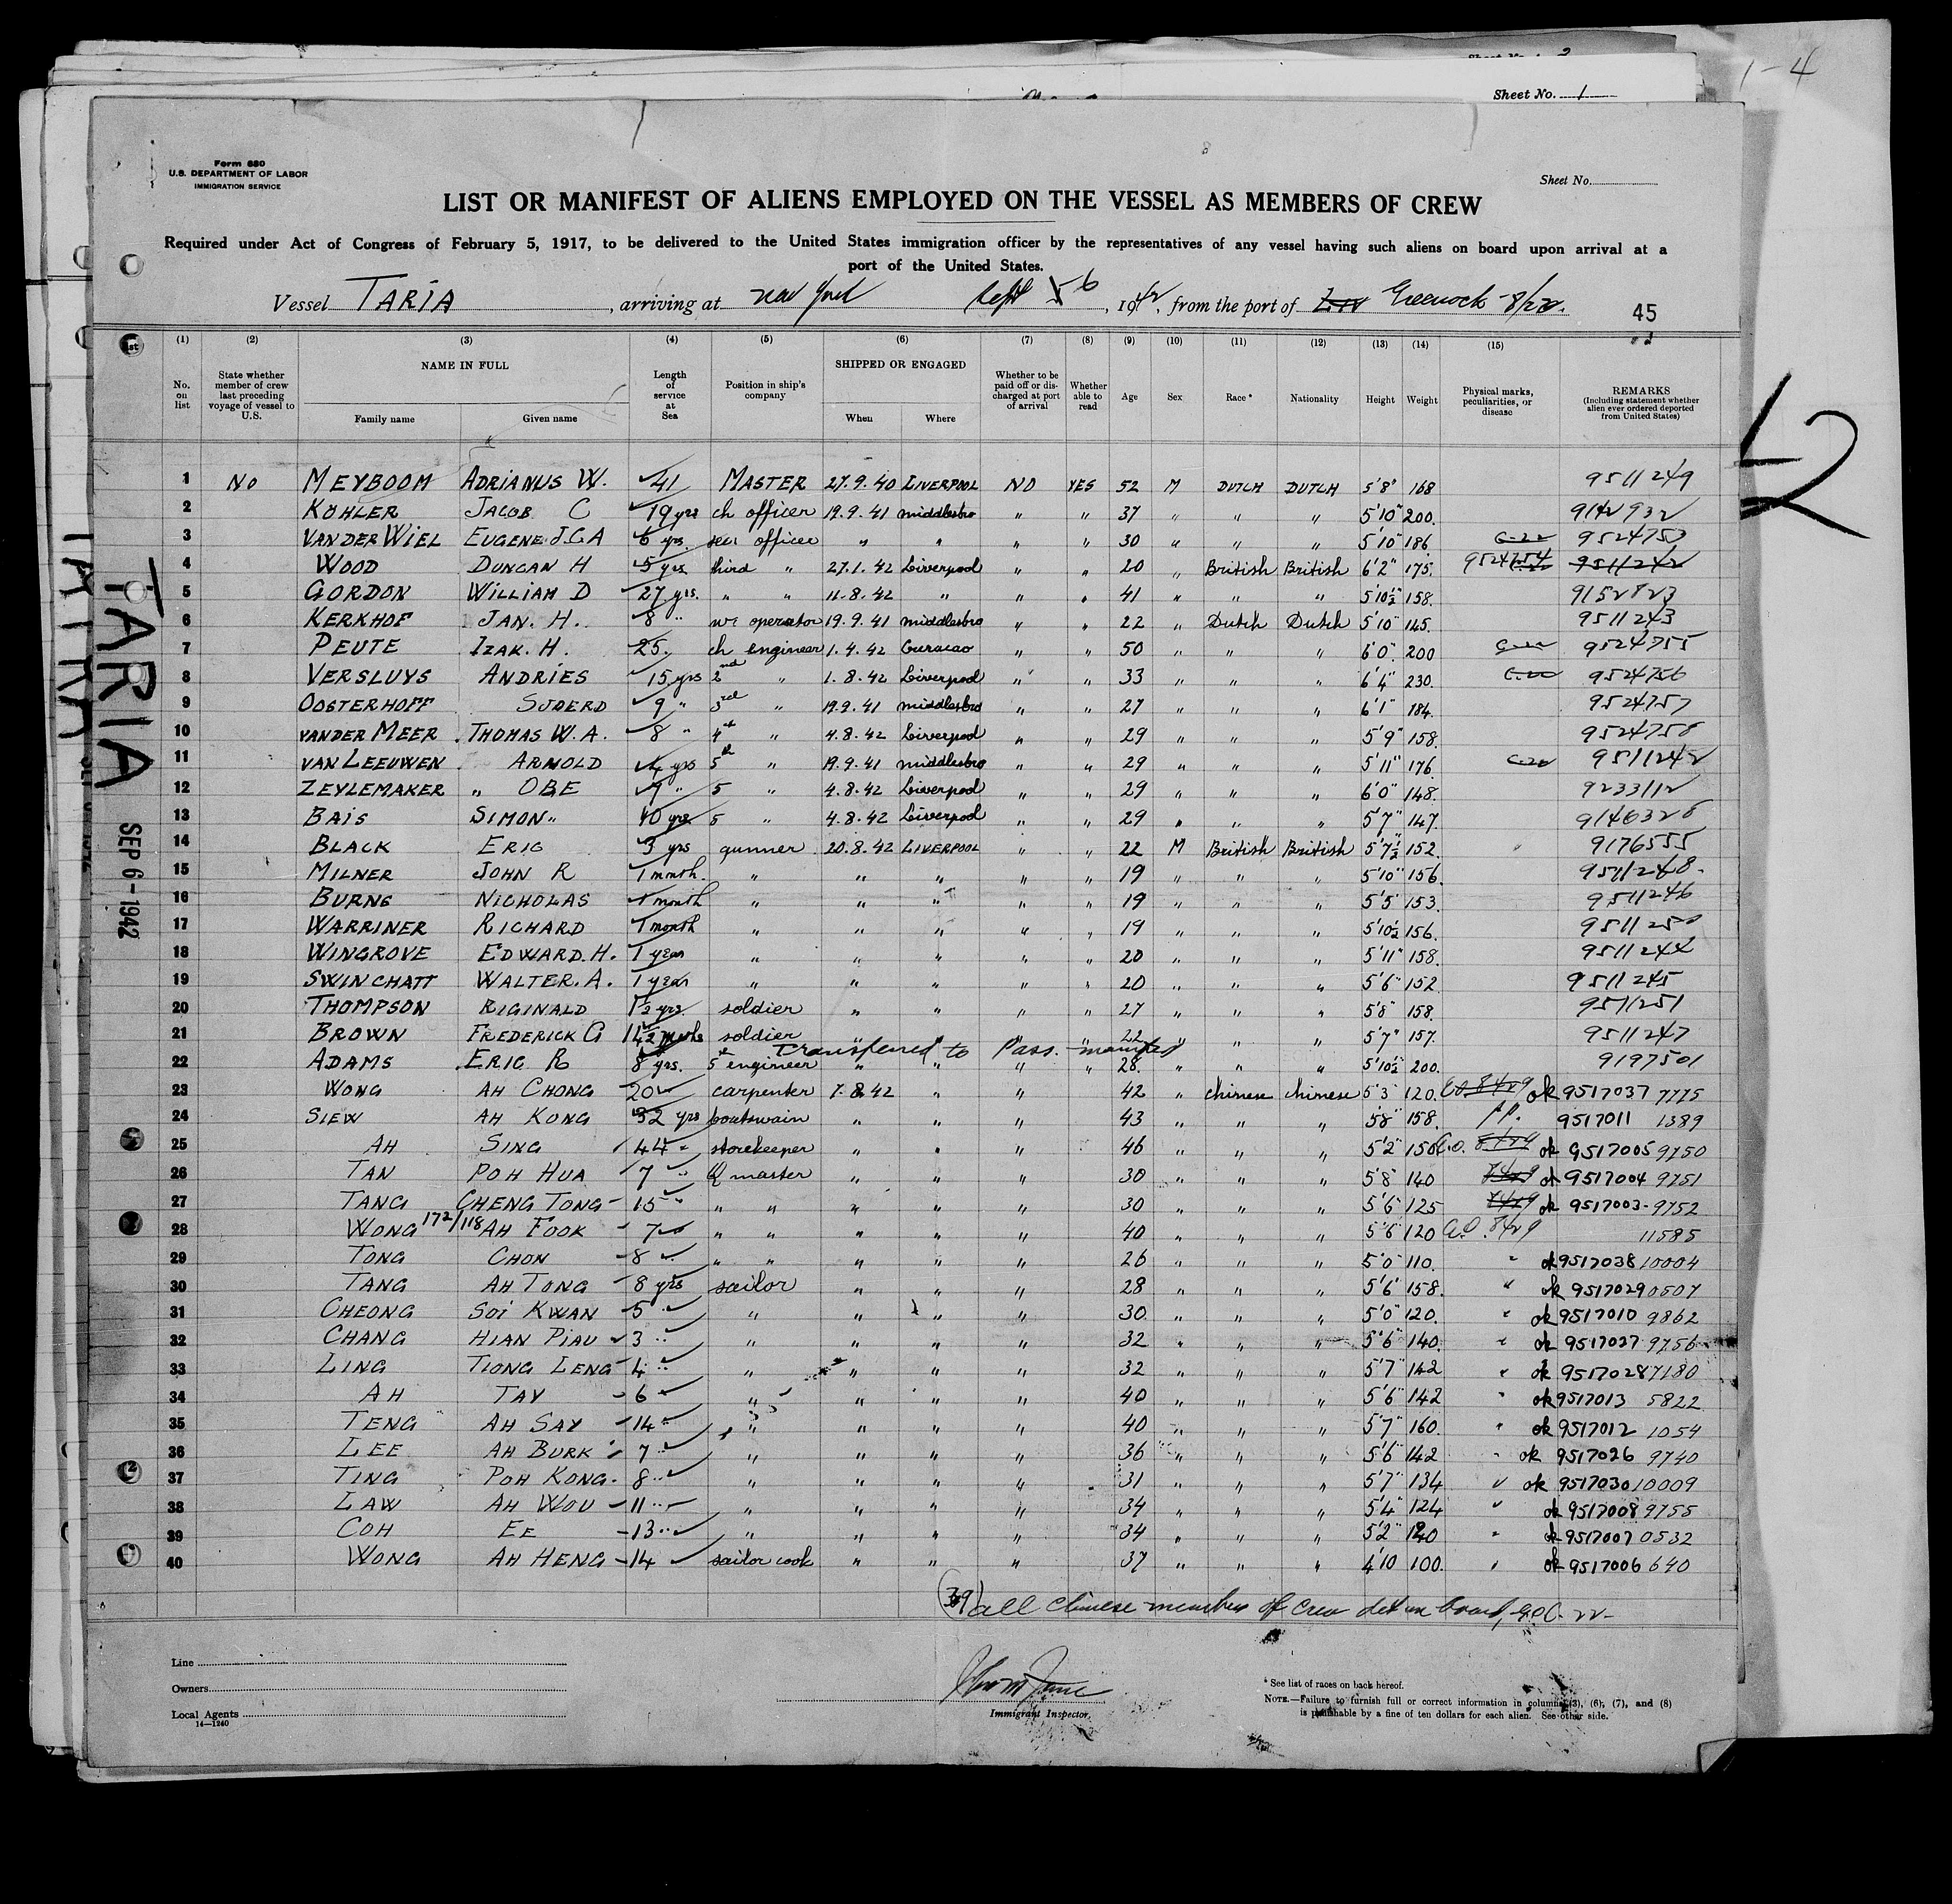 Sheet No. 1
1-4
Form 680
U.S. DEPARTMENT OF LABOR
IMMIGRATION SERVICE
Sheet No.
LIST OR MANIFEST OF ALIENS EMPLOYED ON THE VESSEL AS MEMBERS OF CREW
Required under Act of Congress of February 5, 1917, to be delivered to the United States immigration officer by the representatives of any vessel having such aliens on board upon arrival at a
port of the United States.
Vessel TARIA, arriving at New York Sept 6, 1942, from the port of Greenock 8/22.
45
(1) (2) (3) (4) (5) (6) (7) (8) (9) (10) (11) (12) (13) (14) (15)
No. on list
State whether member of crew last preceding voyage of vessel to U.S.
NAME IN FULL
Family name
Given name
Length of service at Sea
Position in ship's company
SHIPPED OR ENGAGED
When
Where
Whether to be paid off or discharged at port of arrival
Whether able to read
Age
Sex
Race*
Nationality
Height
Weight
Physical marks, peculiarities, or disease
REMARKS
(Including statement whether alien ever ordered deported from United States)
1 No MEYBOOM ADRIANUS W. 41 MASTER 27.9.40 LIVERPOOL NO YES 52 M DUTCH DUTCH 5'8" 168 9511249
2 KÖHLER JACOB C 19 yrs ch officer 19.9.41 middlesbro " " 37 " " " 5'10" 200. 9142932
3 VAN DER WIEL EUGENE J.C.A 6 yrs. sec officer " " " " 30 " " " 5'10" 186 9524753
4 WOOD DUNCAN H 5 yrs third " 27.1.42 Liverpool " " 20 " British British 6'2" 175. 9524754 9511242
5 GORDON WILLIAM D 27 yrs. " " 11.8.42 " " " 41 " " " 5'10½" 158. 9152823
6 KERKHOF JAN. H. 8 " w/ operator 19.9.41 middlesbro " " 22 " Dutch Dutch 5'10" 145. 9511243
7 PEUTE IZAK. H. 25. ch engineer 1.4.42 Curacao " " 50 " " " 6'0" 200 9524755
8 VERSLUYS ANDRIES 15 yrs 2nd " 1.8.42 Liverpool " " 33 " " " 6'4" 230. 9524756
9 OOSTERHOFF SJOERD 9 " 3rd " 19.9.41 middlesbro " " 27 " " " 6'1" 184. 9524757
10 VAN DER MEER THOMAS W.A. 8 " 4th " 4.8.42 Liverpool " " 29 " " " 5'9" 158. 9524758
11 VAN LEEUWEN ARNOLD 4 yrs 5th " 19.9.41 middlesbro " " 29 " " " 5'11" 176. 9511242
12 ZEYLEMAKER " OBE 9 " 5 " 4.8.42 Liverpool " " 29 " " " 6'0" 148. 9233112
13 BAIS SIMON " 10 yrs 5 " 4.8.42 Liverpool " " 29 " " " 5'7" 147. 9146328
14 BLACK ERIC 3 yrs gunner 20.8.42 LIVERPOOL " " 22 M British British 5'7½" 152. 9176555
15 MILNER JOHN R 1 month. " " " " " 19 " " " 5'10" 156. 9511248.
16 BURNS NICHOLAS 1 month " " " " " 19 " " " 5'5" 153. 9511246
17 WARRINER RICHARD 1 month " " " " " 19 " " " 5'10½" 156. 9511250
18 WINGROVE EDWARD. H. 1 year " " " " " 20 " " " 5'11" 158. 9511244
19 SWINCHATT WALTER. A. 1 year " " " " " 20 " " " 5'6" 152 9511245
20 THOMPSON RIGINALD 1½ yrs soldier " " " " 27 " " " 5'8" 158. 9511251
21 BROWN FREDERICK G soldier " " " " 22 " " " 5'7" 157. 9511247
transferred to Pass. manifest
22 ADAMS ERIC R 8 yrs. 5th engineer " " " " 28. " " " 5'10½" 200. 9197501
23 WONG AH CHONG 20 carpenter 7.8.42 " " 42 " chinese chinese 5'3" 120. ok 9517037 7775
24 SIEW AH KONG 32 yrs boatswain " " " 43 " " " 5'8" 158. P.P. 9517011 1389
25 AH SING 44 " storekeeper " " " 46 " " " 5'2" 150 ok 9517005 9750
26 TAN POH HUA 7 " Q master " " " 30 " " " 5'8" 140 ok 9517004 9751
27 TANG CHENG TONG 15 " " " " " " 30 " " " 5'6" 125 ok 9517003 9752
28 WONG 172/118 AH FOOK 7 " " " " " 40 " " " 5'6" 120 11585
29 TONG CHON 8 " " " " " 26 " " " 5'0" 110. " ok 9517038 10004
30 TANG AH TONG 8 yrs sailor " " " 28 " " " 5'6" 158. " ok 9517029 0507
31 CHEONG SOI KWAN 5 " " " " " 30. " " " 5'0" 120. " ok 9517010 9862
32 CHANG HIAN PIAU 3 " " " " " 32 " " " 5'6" 140. " ok 9517027 9756
33 LING TIONG LENG 4 " " " " " 32 " " " 5'7" 142 " ok 9517028 7180
34 AH TAY 6 " " " " 40 " " " 5'6" 142 " ok 9517013 5822
35 TENG AH SAY 14 " " " " " 40 " " " 5'7" 160. " ok 9517012 1054
36 LEE AH BURK 7 " " " " " 36 " " " 5'6" 142 " ok 9517026 9740
37 TING POH KONG. 8 " " " " " 31 " " " 5'7" 134 " ok 9517030 10009
38 LAW AH WOU 11 " " " " " 34 " " " 5'4" 124 " ok 9517008 9755
39 COH EE 13 " " " " " 34 " " " 5'2" 120 " ok 9517007 0532
40 WONG AH HENG 14 sailor cook " " " 37 " " " 4'10 100. " ok 9517006 640
39 all chinese members of crew det on board,
Line
Owners
Local Agents
14—1240
Immigrant Inspector.
* See list of races on back hereof.
NOTE.—Failure to furnish full or correct information in columns (3), (6), (7), and (8)
is punishable by a fine of ten dollars for each alien. See other side.
TARIA
SEP 6-1942